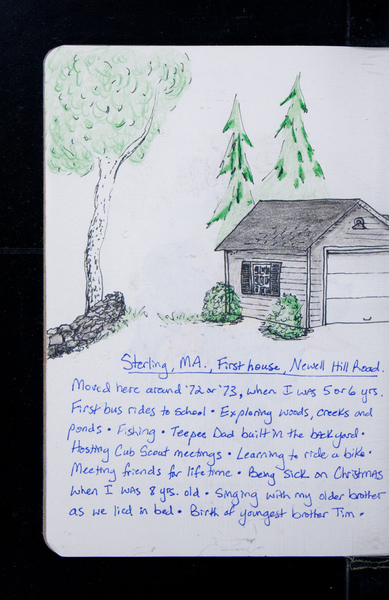 Sterling, MA., First house, Newell Hill Road.
Moved here around '72 or '73, when I was 5 or 6 yrs.
First bus rides to school • Exploring woods, creeks and
ponds • Fishing • Teepee Dad built in the backyard •
Hosting Cub Scout meetings • Learning to ride a bike •
Meeting friends for life time • Being sick on Christmas
when I was 8 yrs. old • Singing with my older brother
as we lied in bed • Birth of youngest brother Tim •